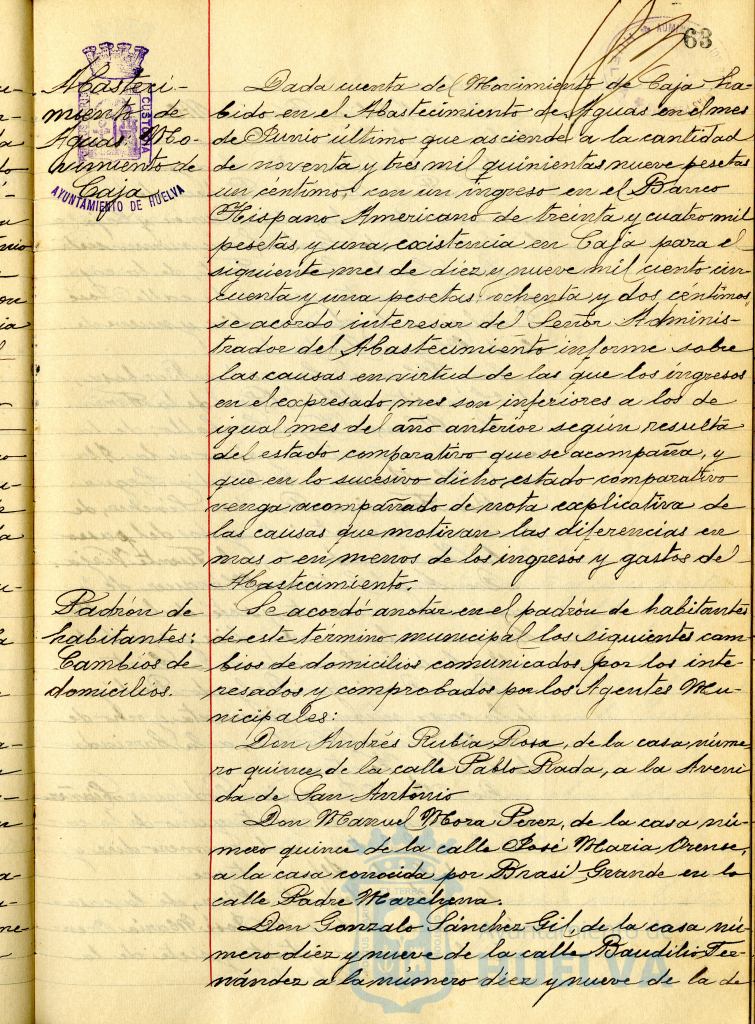 63
Abasteci-
miento de
Aguas. Mo-
vimiento de
Caja
AYUNTAMIENTO DE HUELVA
Dada cuenta del Movimiento de Caja ha-
bido en el Abastecimiento de Aguas en el mes
de Junio último que asciende a la cantidad
de noventa y tres mil quinientas nueve pesetas
un céntimo, con un ingreso en el Banco
Hispano Americano de treinta y cuatro mil
pesetas y una existencia en Caja para el
siguiente mes de diez y nueve mil ciento cin-
cuenta y una pesetas ochenta y dos céntimos,
se acordó interesar del Señor Adminis-
trador del Abastecimiento informe sobre
las causas en virtud de las que los ingresos
en el expresado mes son inferiores a los de
igual mes del año anterior según resulta
del estado comparativo que se acompaña, y
que en lo sucesivo dicho estado comparativo
venga acompañado de nota explicativa de
las causas que motivan las diferencias en
mas o en menos de los ingresos y gastos del
Abastecimiento.
Padrón de
habitantes:
Cambios de
domicilios.
Se acordó anotar en el padrón de habitantes
de este término municipal los siguientes cam-
bios de domicilios comunicados por los inte-
resados y comprobados por los Agentes Mu-
nicipales:
Don Andrés Rubia Rosa, de la casa núme-
ro quince de la calle Pablo Rada, a la Aveni
da de San Antonio
Don Manuel Mora Perez, de la casa nú-
mero quince de la calle José Maria Orense,
a la casa conocida por Brasil Grande en la
calle Padre Marchena.
Don Gonzalo Sánchez Gil, de la casa nú-
mero diez y nueve de la calle Baudilio Fer-
nández a la número diez y nueve de la de
HUELVA